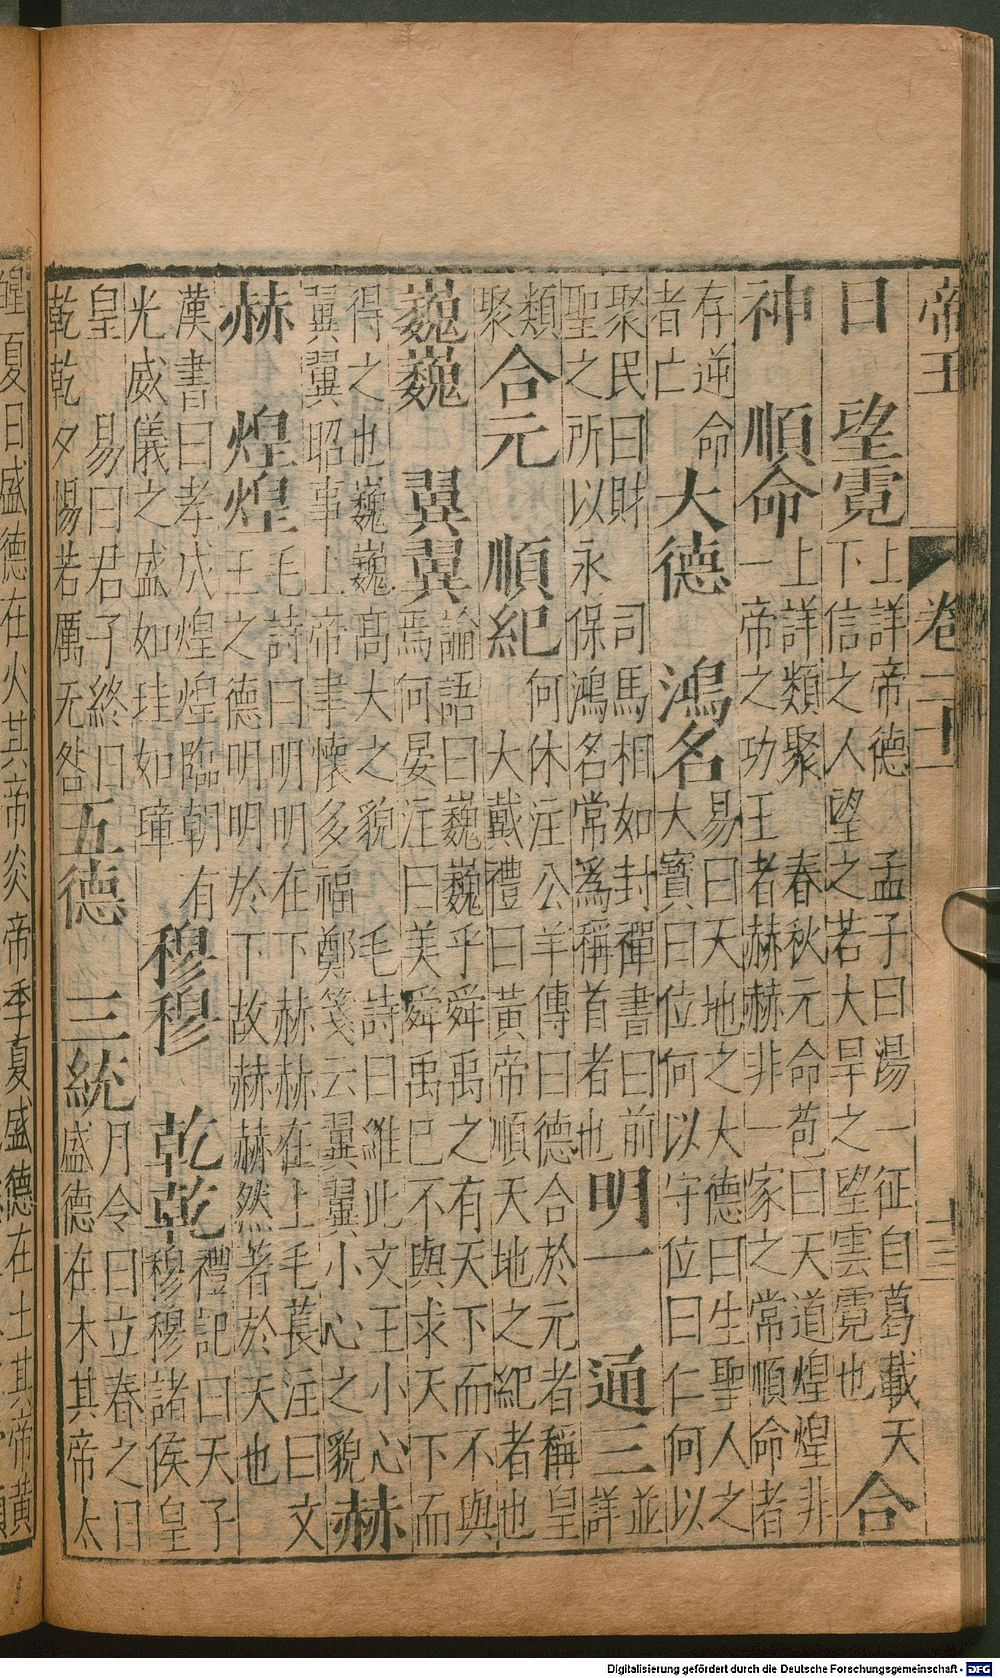 帝王 卷二十一 十三
日 望霓 上詳帝德 孟子曰湯一征自葛載天
下信之人望之若大旱之望雲霓也 合
神 順命 上詳類聚 春秋元命苞曰天道煌煌非
一帝之功王者赫赫非一家之常順命者
存逆命
者亡 大德 鴻名 易曰天地之大德曰生聖人之
大寶曰位何以守位曰仁何以
聚民曰財 司馬相如封禪書曰前
聖之所以永保鴻名常爲稱首者也 明一 通三 並
詳
類
聚 合元 順紀 何休注公羊傳曰德合於元者稱皇
大戴禮曰黃帝順天地之紀者也
巍巍 翼翼 論語曰巍巍乎舜禹之有天下而不與
焉何晏注曰美舜禹已不與求天下而
得之也巍巍高大之貌 毛詩曰維此文王小心
翼翼昭事上帝聿懷多福鄭箋云翼翼小心之貌 赫
赫 煌煌 毛詩曰明明在下赫赫在上毛萇注曰文
王之德明明於下故赫赫然著於天也
漢書曰孝成煌煌臨朝有
光威儀之盛如珪如璋 穆穆 乾乾 禮記曰天子
穆穆諸侯皇
皇 易曰君子終日
乾乾夕惕若厲无咎 五德 三統 月令曰立春之日
盛德在木其帝太
夏日盛德在火其帝炎帝季夏盛德在土其帝黄
Digitalisierung gefördert durch die Deutsche Forschungsgemeinschaft - DFG